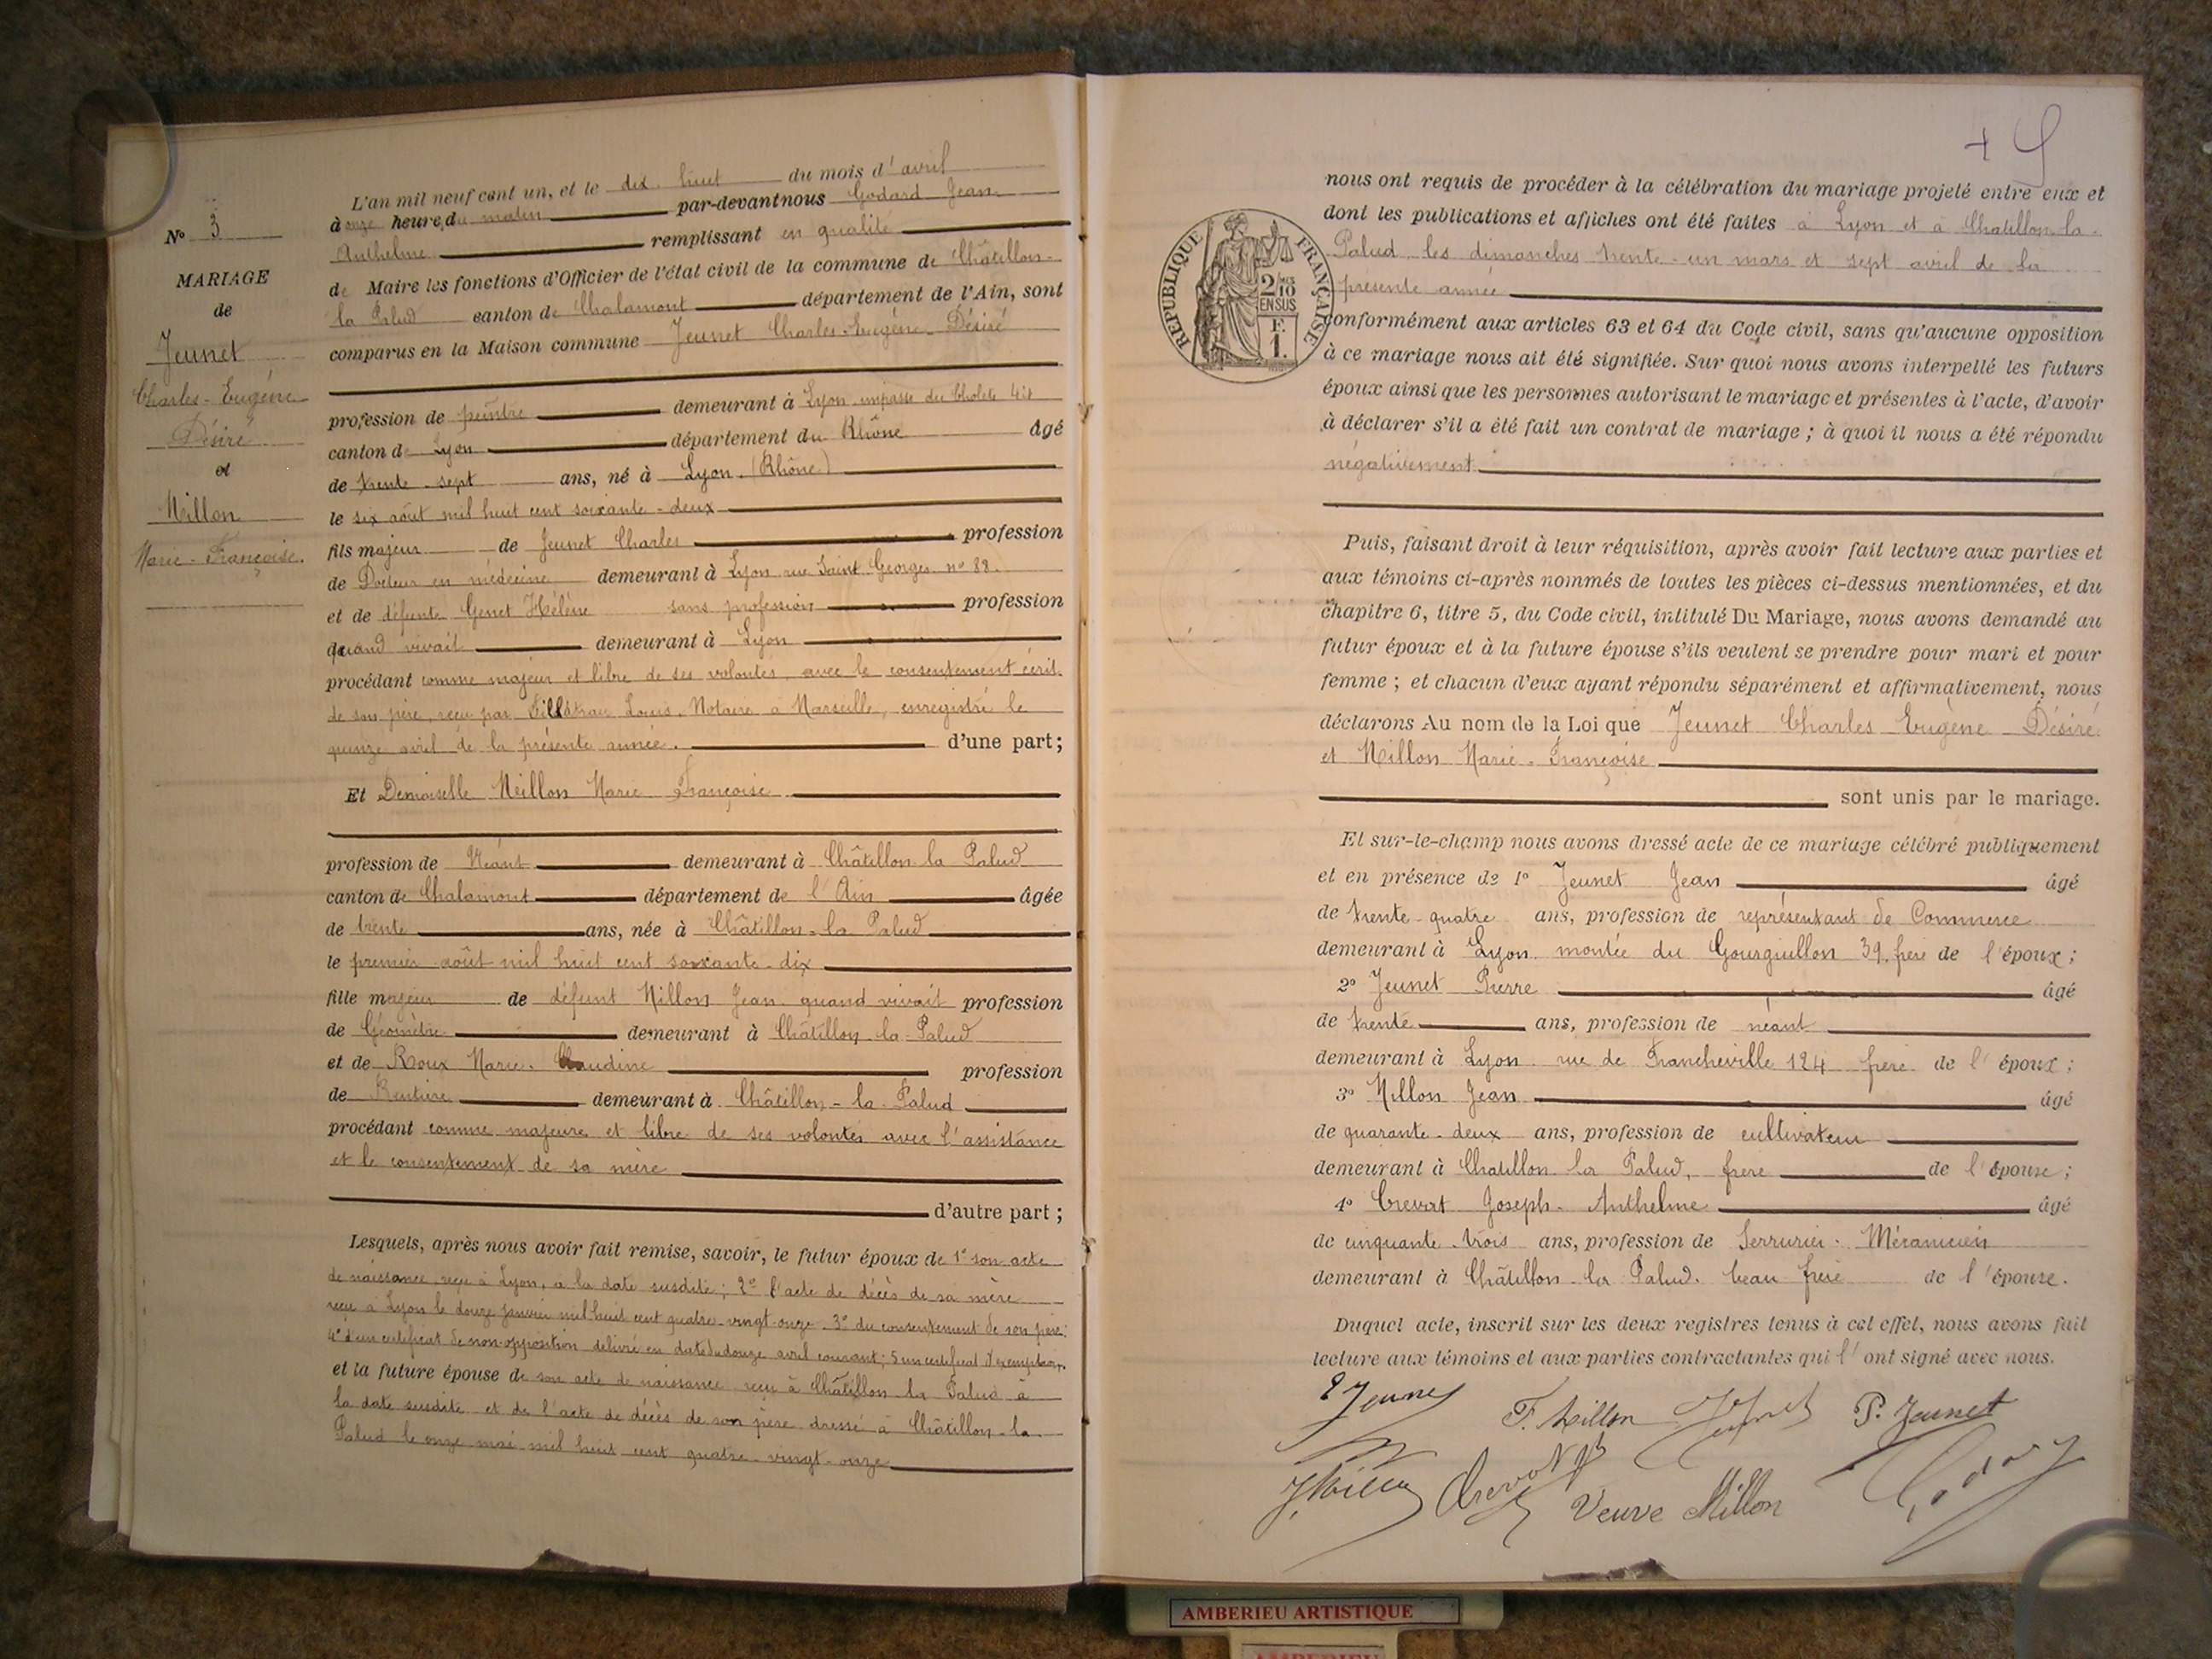 L'an mil neuf cent un, et le dix huit du mois d'avril
à onze heure, du matin par-devant nous Godard Jean
Anthelme remplissant en qualité
de Maire les fonctions d'Officier de l'état civil de la commune de Châtillon-
la Palud canton de Chalamont département de l'Ain, sont
comparus en la Maison commune Jeunet Charles-Eugène-Désiré
profession de peintre demeurant à Lyon impasse du
canton de Lyon département du Rhône âgé
de trente-sept ans, né à Lyon. (Rhône)
le six août mil huit cent soixante-deux
fils majeur de Jeunet Charles profession
de Docteur en médecine demeurant à Lyon rue Saint Georges nº 88.
et de défunte Genet Hélène sans profession profession
quand vivait demeurant à Lyon
procédant comme majeur et libre de ses volontés, avec le consentement écrit
de son père, reçu par Louis, Notaire à Marseille, enregistré le
quinze avril de la présente année. d'une part;
Et Demoiselle Millon Marie Françoise
profession de Néant demeurant à Châtillon la Palud
canton de Chalamont département de l'Ain âgée
de trente ans, née à Châtillon-la Palud
le premier août mil huit cent soixante-dix
fille majeur de défunt Millon Jean quand vivait profession
de Géomètre demeurant à Châtillon-la-Palud
et de Roux Marie-Claudine profession
de Rentière demeurant à Châtillon-la-Palud
procédant comme majeure et libre de ses volontés avec l'assistance
et le consentement de sa mère
d'autre part;
Lesquels, après nous avoir fait remise, savoir, le futur époux de 1º son acte
de naissance reçu à Lyon, à la date susdite; 2º l'acte de décès de sa mère
reçu à Lyon le douze janvier mil huit cent quatre-vingt-onze 3º du consentement de son père;
4º d'un certificat de non-opposition délivré en date du douze avril courant; 5 un certificat d'exemption
et la future épouse de son acte de naissance reçu à Châtillon la Palud à
la date susdite et de l'acte de décès de son père dressé à Châtillon-la
Palud le onze mai mil huit cent quatre-vingt-onze
Nº 3
MARIAGE
de
Jeunet
Charles-Eugène
Désiré
et
Millon
Marie-Françoise.
+ 9
nous ont requis de procéder à la célébration du mariage projeté entre eux et
dont les publications et affiches ont été faites à Lyon et à Chatillon-la-
Palud les dimanches trente-un mars et sept avril de la
présente année
RÉPUBLIQUE FRANÇAISE
2/10
EN SUS
F.
1.
conformément aux articles 63 et 64 du Code civil, sans qu'aucune opposition
à ce mariage nous ait été signifiée. Sur quoi nous avons interpellé les futurs
époux ainsi que les personnes autorisant le mariage et présentes à l'acte, d'avoir
à déclarer s'il a été fait un contrat de mariage; à quoi il nous a été répondu
négativement
Puis, faisant droit à leur réquisition, après avoir fait lecture aux parties et
aux témoins ci-après nommés de toutes les pièces ci-dessus mentionnées, et du
chapitre 6, titre 5, du Code civil, intitulé Du Mariage, nous avons demandé au
futur époux et à la future épouse s'ils veulent se prendre pour mari et pour
femme; et chacun d'eux ayant répondu séparément et affirmativement, nous
déclarons Au nom de la Loi que Jeunet Charles Eugène Désiré
et Millon Marie-Françoise
sont unis par le mariage.
Et sur-le-champ nous avons dressé acte de ce mariage célébré publiquement
et en présence de 1º Jeunet Jean âgé
de trente-quatre ans, profession de représentant de Commerce
demeurant à Lyon montée du Gourguillon 39. frère de l'époux;
2º Jeunet Pierre âgé
de trente ans, profession de néant
demeurant à Lyon rue de Francheville 124 frère de l'époux;
3º Millon Jean âgé
de quarante-deux ans, profession de cultivateur
demeurant à Chatillon la Palud, frère de l'épouse;
4º Crevat Joseph-Anthelme âgé
de cinquante-trois ans, profession de Serrurier-Mécanicien
demeurant à Châtillon-la Palud. beau frère de l'épouse.
Duquel acte, inscrit sur les deux registres tenus à cet effet, nous avons fait
lecture aux témoins et aux parties contractantes qui l'ont signé avec nous.
Jeunet F. Millon Jeunet P. Jeunet
J Millon Crevat Veuve Millon Godard
AMBERIEU ARTISTIQUE
AMBERIEU